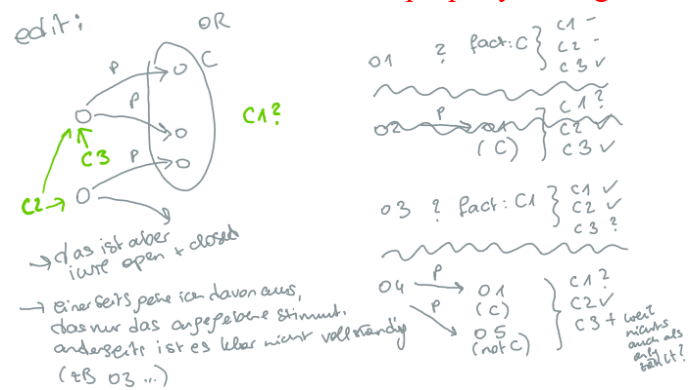 edit:
OR
C
P
P
P
C1?
C3
C2
→ das ist aber
iwie open + closed
→ einerseits gehe ich davon aus,
das nur das angegebene stimmt.
anderseits ist es klar nicht vollständig
(zB O3 ...)
O1 ? fact: C
C1 -
C2 -
C3 ✓
O2 P O1
(C)
C1 ?
C2 ✓
C3 ✓
O3 ? fact: C1
C1 ✓
C2 ✓
C3 ?
O4 P O1
(C)
P O5
(not C)
C1 ?
C2 ✓
C3 + weil
nichts
auch als
only